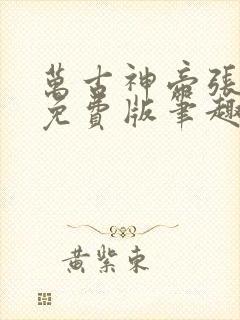 萬古神帝張
免費版筆趣
黃紫東